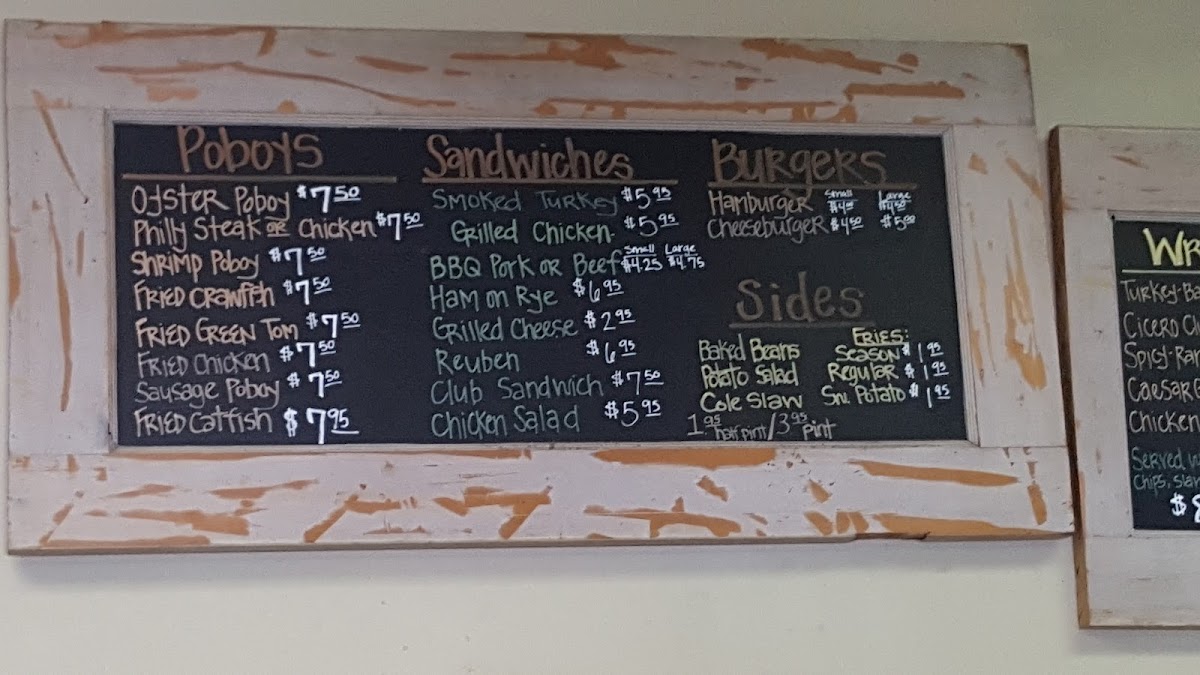 Poboys
Oyster Poboy $7.50
Philly Steak or Chicken $7.50
Shrimp Poboy $7.50
Fried Crawfish $7.50
Fried Green Tom $7.50
Fried Chicken $7.50
Sausage Poboy $7.50
Fried Catfish $7.95
Sandwiches
Smoked Turkey $5.95
Grilled Chicken $5.95
Small Large
BBQ Pork or Beef $4.25 $4.75
Ham on Rye $6.95
Grilled Cheese $2.95
Reuben $6.95
Club Sandwich $7.50
Chicken Salad $5.95
Burgers
Small Large
Hamburger $4.00 $4.50
Cheeseburger $4.50 $5.00
Sides
Baked Beans
Potato Salad
Cole Slaw
1.95 half pint/3.95 pint
Fries:
Season $1.95
Regular $1.95
Sw. Potato $1.95
Turkey-
Cicero
Spicy-
Caesar
Chicken
Served
Chips,